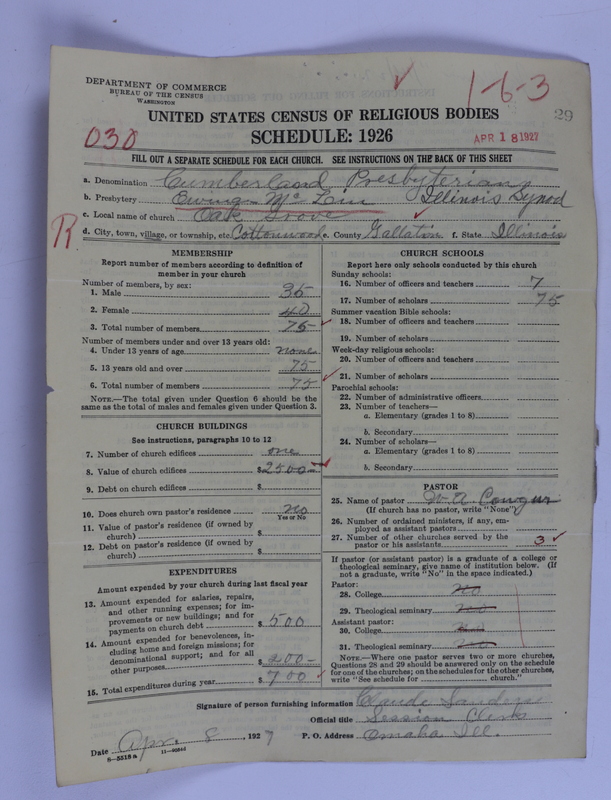 DEPARTMENT OF COMMERCE
BUREAU OF THE CENSUS
WASHINGTON
1-6-3
29
UNITED STATES CENSUS OF RELIGIOUS BODIES
SCHEDULE: 1926
030
APR 18 1927
FILL OUT A SEPARATE SCHEDULE FOR EACH CHURCH. SEE INSTRUCTIONS ON THE BACK OF THIS SHEET
a. Denomination Cumberland Presbyterian
b. Presbytery Ewing McLin Illinois Synod
c. Local name of church Oak Grove
R
d. City, town, village, or township, etc. Cottonwood e. County Gallatin f. State Illinois
MEMBERSHIP
Report number of members according to definition of
member in your church
Number of members, by sex:
1. Male 35
2. Female 40
3. Total number of members 75
Number of members under and over 13 years old:
4. Under 13 years of age none
5. 13 years old and over 75
6. Total number of members 75
NOTE.—The total given under Question 6 should be the
same as the total of males and females given under Question 3.
CHURCH BUILDINGS
See instructions, paragraphs 10 to 12
7. Number of church edifices one
8. Value of church edifices $2500
9. Debt on church edifices $
10. Does church own pastor's residence? no
Yes or No
11. Value of pastor's residence (if owned by
church) $
12. Debt on pastor's residence (if owned by
church) $
EXPENDITURES
Amount expended by your church during last fiscal year
13. Amount expended for salaries, repairs,
and other running expenses; for im-
provements or new buildings; and for
payments on church debt $500
14. Amount expended for benevolences, in-
cluding home and foreign missions; for
denominational support; and for all
other purposes $200
15. Total expenditures during year $700
CHURCH SCHOOLS
Report here only schools conducted by this church
Sunday schools:
16. Number of officers and teachers 7
17. Number of scholars 75
Summer vacation Bible schools:
18. Number of officers and teachers
19. Number of scholars
Week-day religious schools:
20. Number of officers and teachers
21. Number of scholars
Parochial schools:
22. Number of administrative officers
23. Number of teachers—
a. Elementary (grades 1 to 8)
b. Secondary
24. Number of scholars—
a. Elementary (grades 1 to 8)
b. Secondary
PASTOR
25. Name of pastor W. A.
(If church has no pastor, write "None")
26. Number of ordained ministers, if any, em-
ployed as assistant pastors
27. Number of other churches served by the
pastor or his assistants 3
If pastor (or assistant pastor) is a graduate of a college or
theological seminary, give name of institution below. (If
not a graduate, write "No" in the space indicated.)
Pastor:
28. College no
29. Theological seminary no
Assistant pastor:
30. College no
31. Theological seminary no
NOTE.—Where one pastor serves two or more churches,
Questions 28 and 29 should be answered only on the schedule
for one of the churches; on the schedules for the other churches,
write "See schedule for church."
Signature of person furnishing information Claude Sanders
Official title Session Clerk
Date Apr. 8, 1927 P. O. Address Omaha Ill.
8-5518a 11-9084d